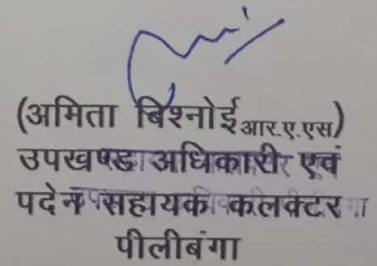 (अमिता बिश्नोई आर.ए.एस)
उपखण्ड अधिकारी एवं
पदेन सहायक कलक्टर
पीलीबंगा